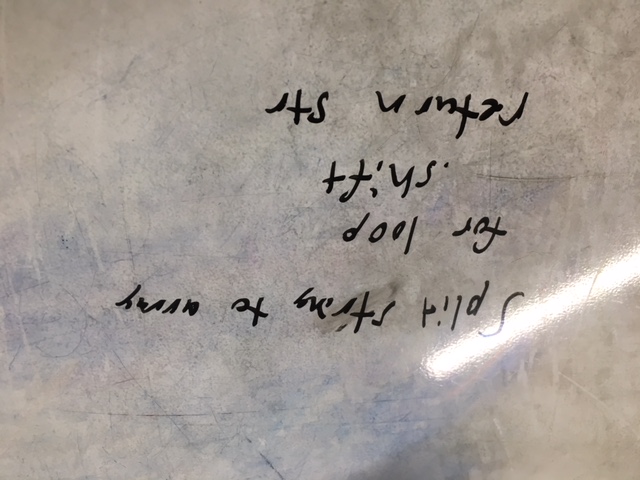 split string to array
for loop
.shift
return str